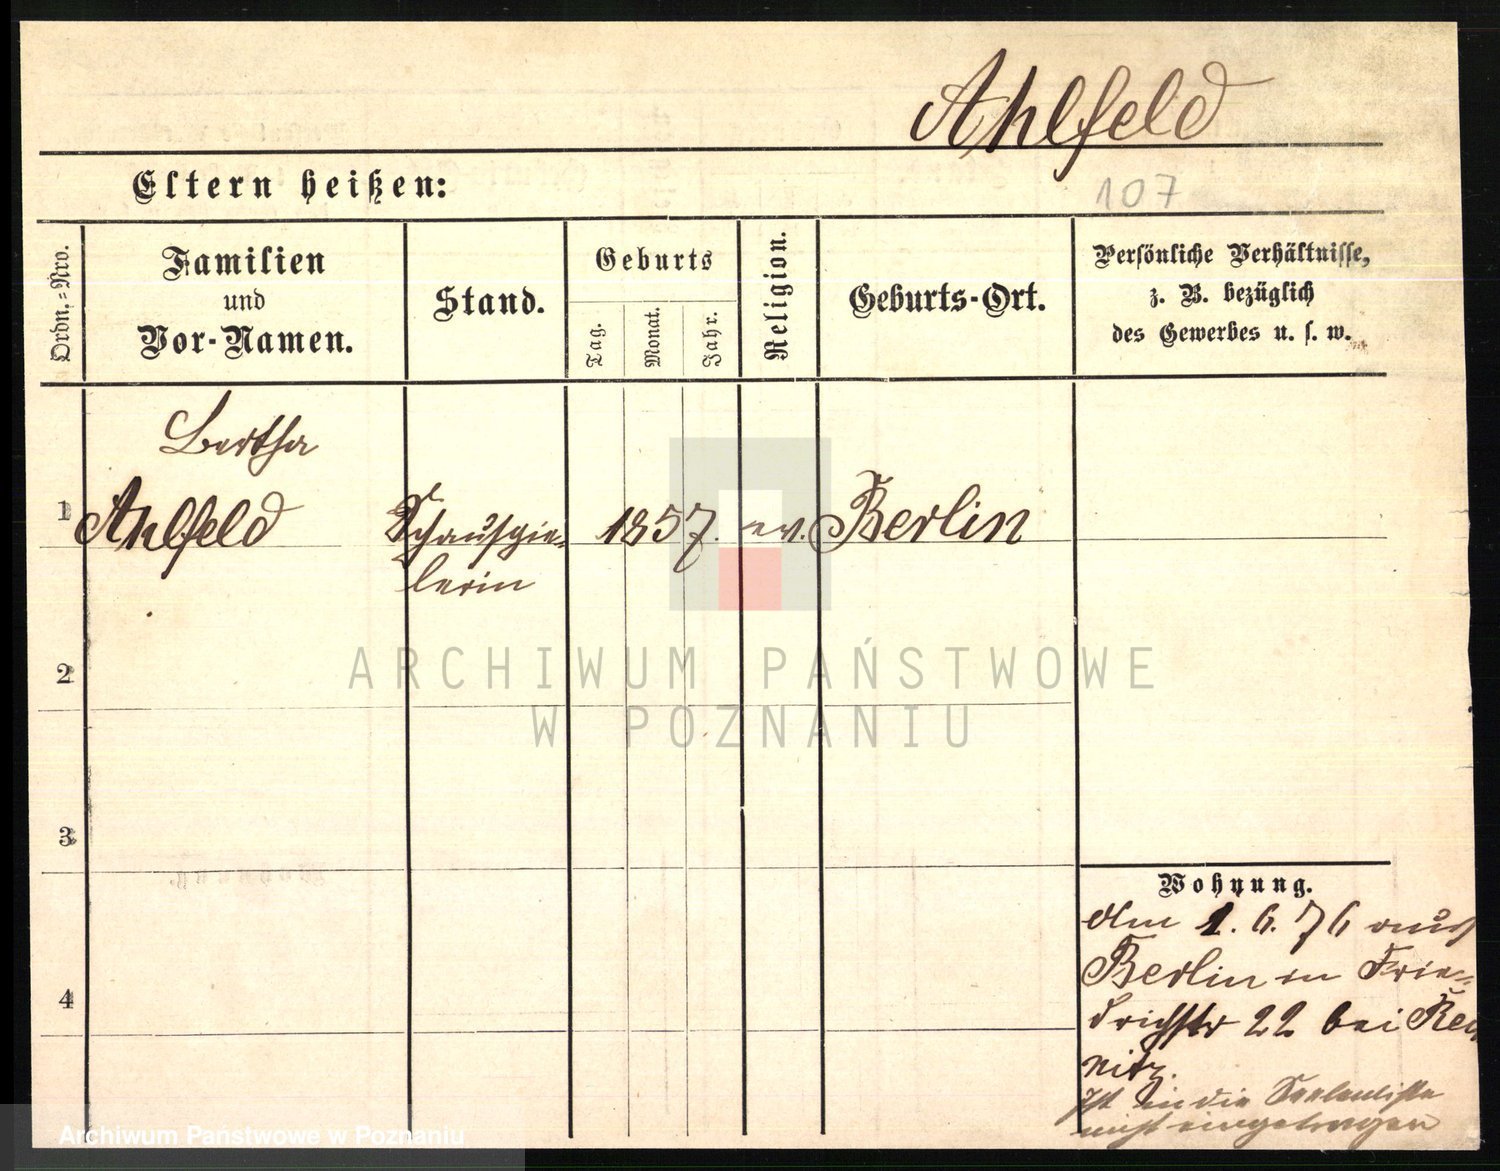 Ahlfeld
Eltern heißen:
107
Ordn.=Nro.
Familien
und
Vor-Namen.
Stand.
Geburts
Tag.
Monat.
Jahr.
Religion.
Geburts-Ort.
Persönliche Verhältnisse,
z. B. bezüglich
des Gewerbes u. s. w.
Bertha
1 Ahlfeld Schauspie- 1857. ev. Berlin
lerin
2
3
4
Wohnung.
Am 1. 6. 76 aus
Berlin in Frie-
drichstr 22 bei
nitz.
Ist in die Seelenliste
nicht eingetragen
ARCHIWUM PAŃSTWOWE
W POZNANIU
Archiwum Państwowe w Poznaniu